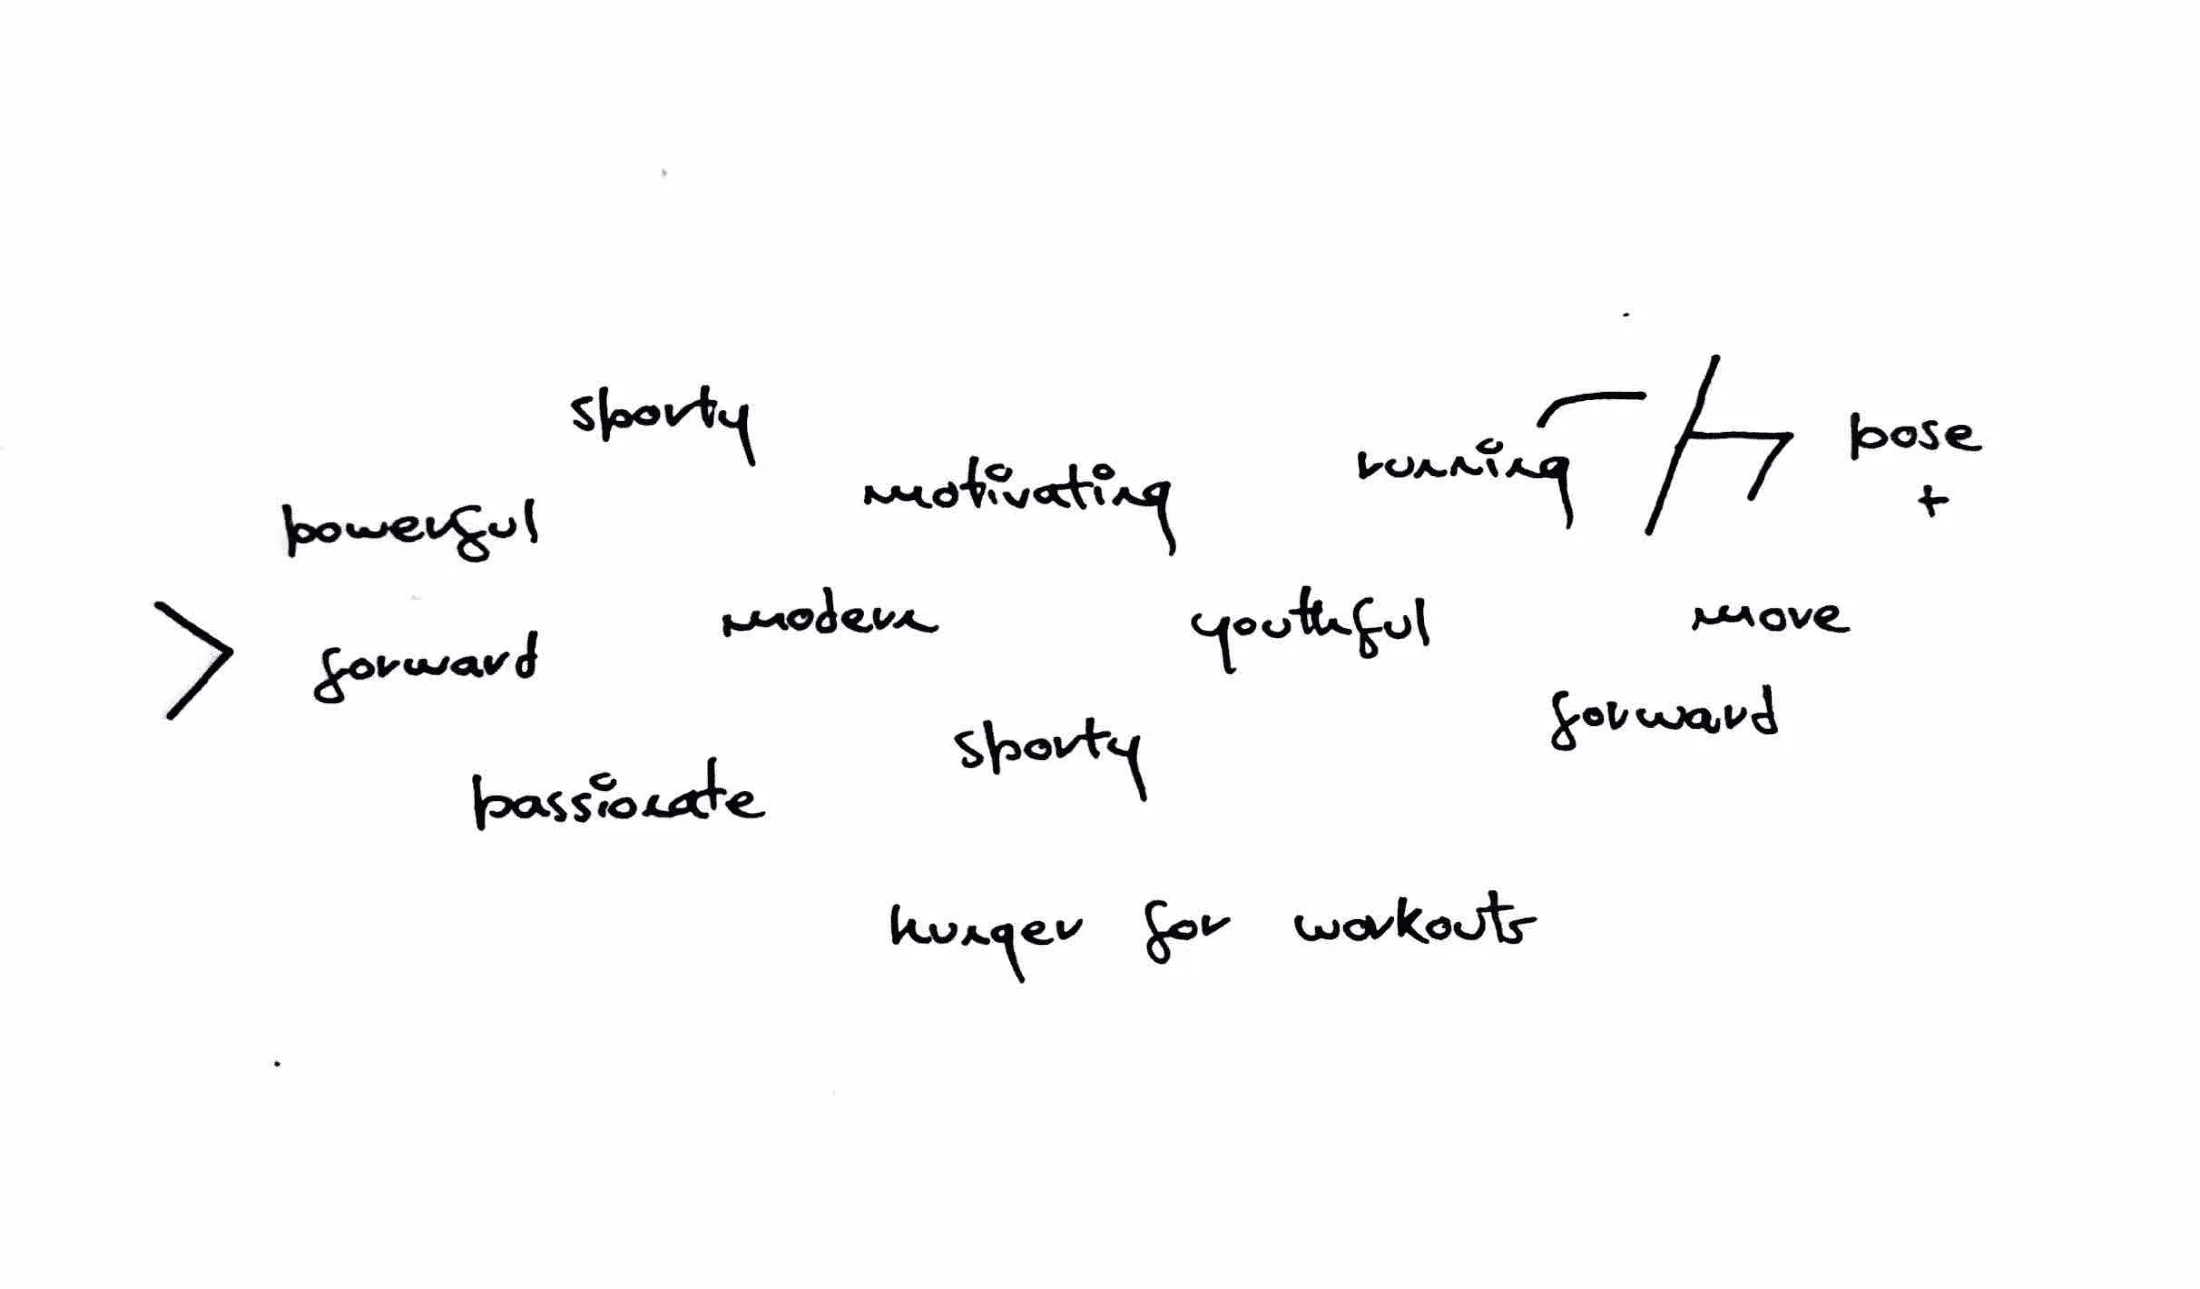 sporty
motivating
running
pose
+
powerful
modern
youthful
move
forward
> forward
sporty
passionate
hunger for workouts